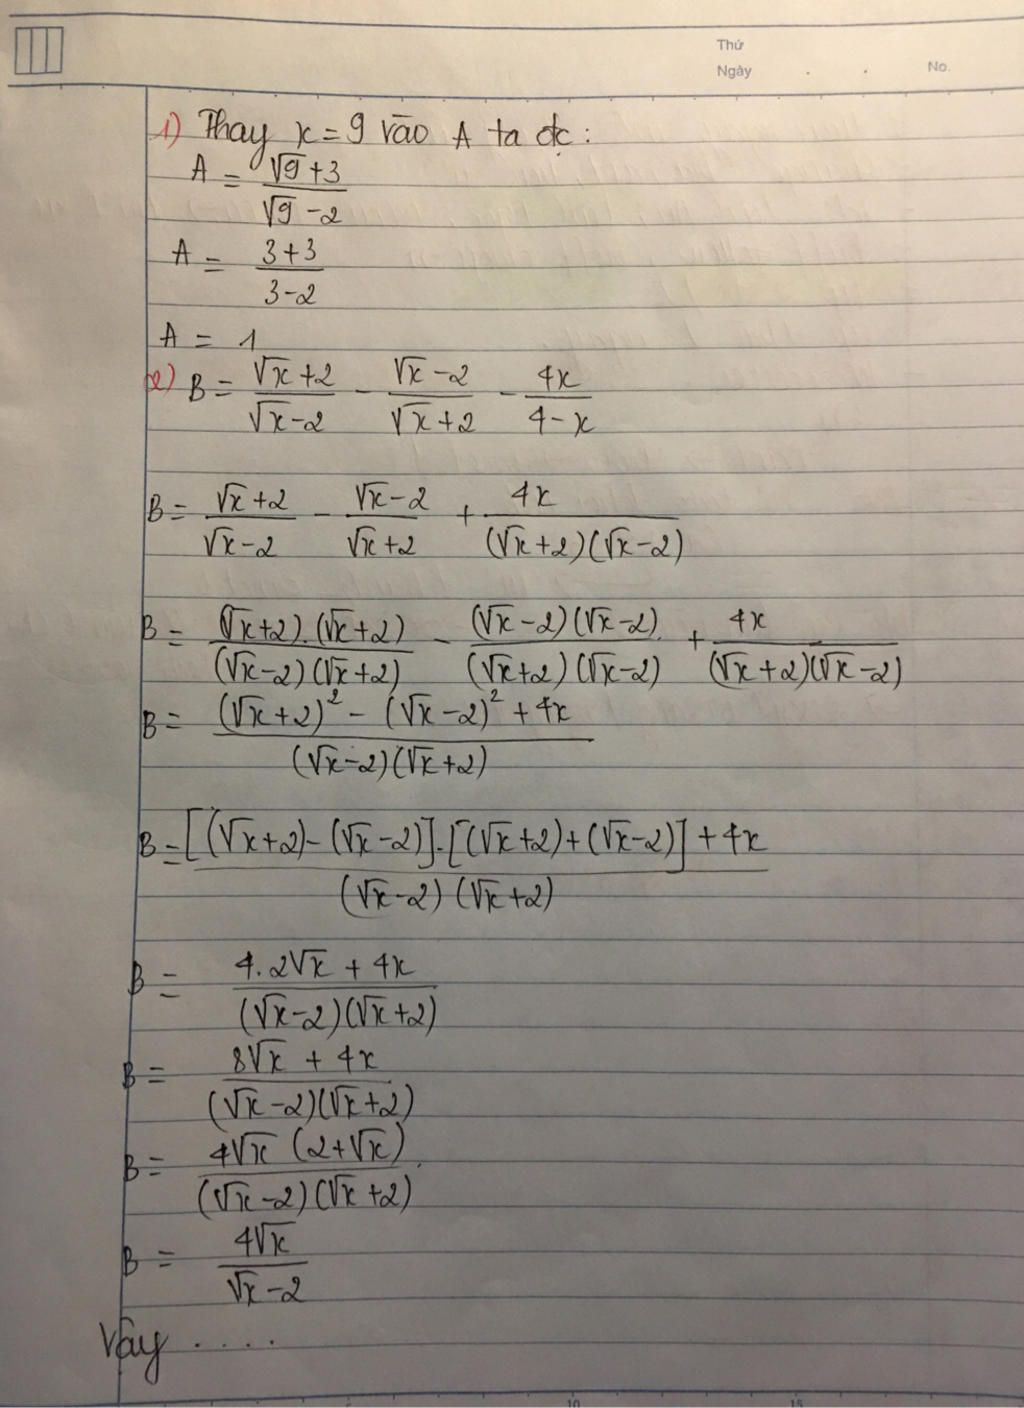 Thứ
Ngày . . No.
1) Thay x = 9 vào A ta đc :
A = (√9 + 3)/(√9 - 2)
A = (3 + 3)/(3 - 2)
A = 1
2) B = (√x + 2)/(√x - 2) - (√x - 2)/(√x + 2) - 4x/(4 - x)
B = (√x + 2)/(√x - 2) - (√x - 2)/(√x + 2) + 4x/((√x + 2)(√x - 2))
B = ((√x + 2).(√x + 2))/((√x - 2)(√x + 2)) - ((√x - 2)(√x - 2))/((√x + 2)(√x - 2)) + 4x/((√x + 2)(√x - 2))
B = ((√x + 2)² - (√x - 2)² + 4x)/((√x - 2)(√x + 2))
B = ([(√x + 2) - (√x - 2)].[(√x + 2) + (√x - 2)] + 4x)/((√x - 2)(√x + 2))
B = (4.2√x + 4x)/((√x - 2)(√x + 2))
B = (8√x + 4x)/((√x - 2)(√x + 2))
B = (4√x (2 + √x))/((√x - 2)(√x + 2))
B = 4√x/(√x - 2)
Vậy ....
10 15